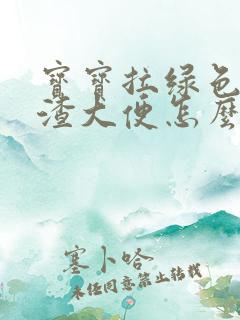 寶寶拉綠色
渣大便怎麼
塞卜哈
未经同意禁止转载